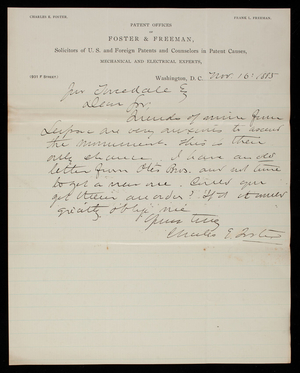 CHARLES E. FOSTER. FRANK L. FREEMAN.
PATENT OFFICES
OF
FOSTER & FREEMAN,
Solicitors of U. S. and Foreign Patents and Counselors in Patent Causes,
MECHANICAL AND ELECTRICAL EXPERTS,
(931 F STREET.) Washington, D. C. Nov. 16, 1885
Dear Sir:
Friends of mine from
are very anxious to ascend
the monument. This is their
only chance. I have an old
letter from Otis Bros. and not time
to get a new one. Could you
get them an order? If so it would
greatly oblige me
Yours truly
Charles E. Foster